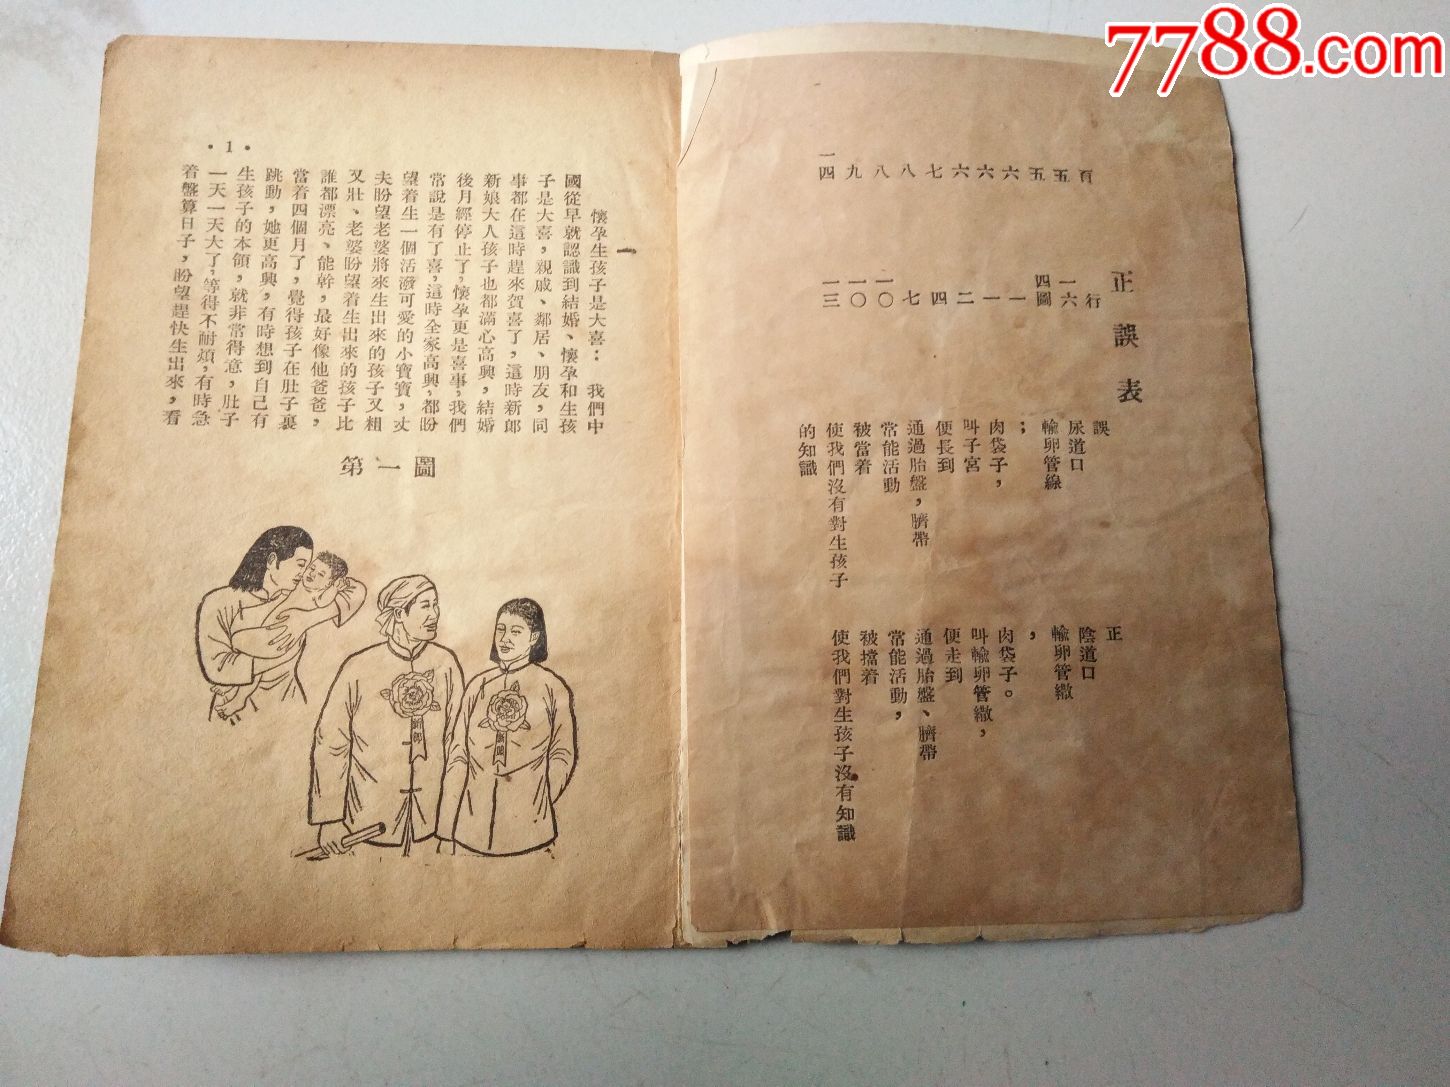 7788.com
正誤表
頁 行 誤 正
五 一六 尿道口 陰道口
五 四圖 輸卵管線 輸卵管繖
六 一 ； ，
六 一 肉袋子， 肉袋子。
六 二 叫子宮 叫輸卵管繖，
七 四 便長到 便走到
八 七 通過胎盤，臍帶 通過胎盤、臍帶
八 一〇 常能活動 常能活動，
九 一〇 被當着 被擋着
一四 一三 使我們沒有對生孩子 使我們對生孩子沒有知識
的知識
一
懷孕生孩子是大喜： 我們中
國從早就認識到結婚、懷孕和生孩
子是大喜，親戚、鄰居、朋友，同
事都在這時趕來賀喜了，這時新郎
新娘大人孩子也都滿心高興，結婚
後月經停止了，懷孕更是喜事，我們
常說是有了喜，這時全家高興，都盼
望着生一個活潑可愛的小寶寶，丈
夫盼望老婆將來生出來的孩子又粗
又壯、老婆盼望着生出來的孩子比
誰都漂亮、能幹，最好像他爸爸，
當着四個月了，覺得孩子在肚子裏
跳動，她更高興，有時想到自己有
生孩子的本領，就非常得意，肚子
一天一天大了，等得不耐煩，有時急
着盤算日子，盼望趕快生出來，看
•1•
第一圖
新郎
新娘